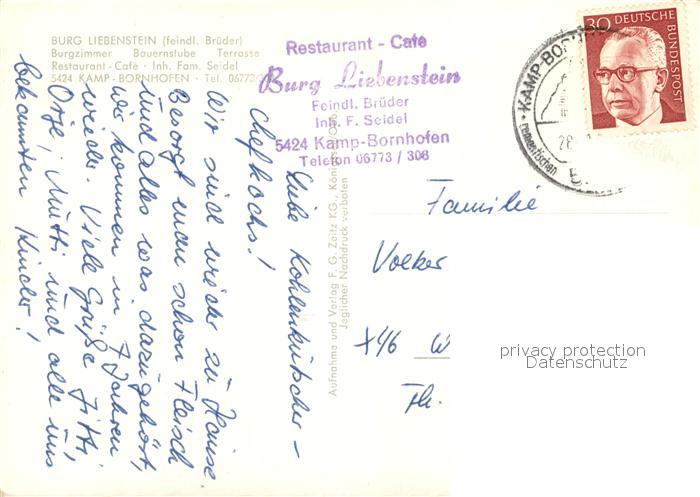 BURG LIEBENSTEIN (feindl. Brüder)
Burgzimmer Bauernstube Terrasse
Restaurant-Café · Inh. Fam. Seidel
5424 KAMP-BORNHOFEN · Tel. 06773/
Restaurant - Café
Burg Liebenstein
Feindl. Brüder
Inh. F. Seidel
5424 Kamp-Bornhofen
Telefon 06773 / 308
30 DEUTSCHE
BUNDESPOST
KAMP-BOR
romantischen
28
Liebe Kohlenkutscher-
Chefkochs!
Wir sind wieder zu Hause.
Besorgt man schon Fleisch
und alles was dazugehört,
wir kommen in 7 Jahren
wieder. Viele Grüße
Mutti und alle uns
bekannten Kinder!
Aufnahme und Verlag F. G. Zeitz KG., Königssee/Obb.
Jeglicher Nachdruck verboten
Familie
Volker
W
privacy protection
Datenschutz